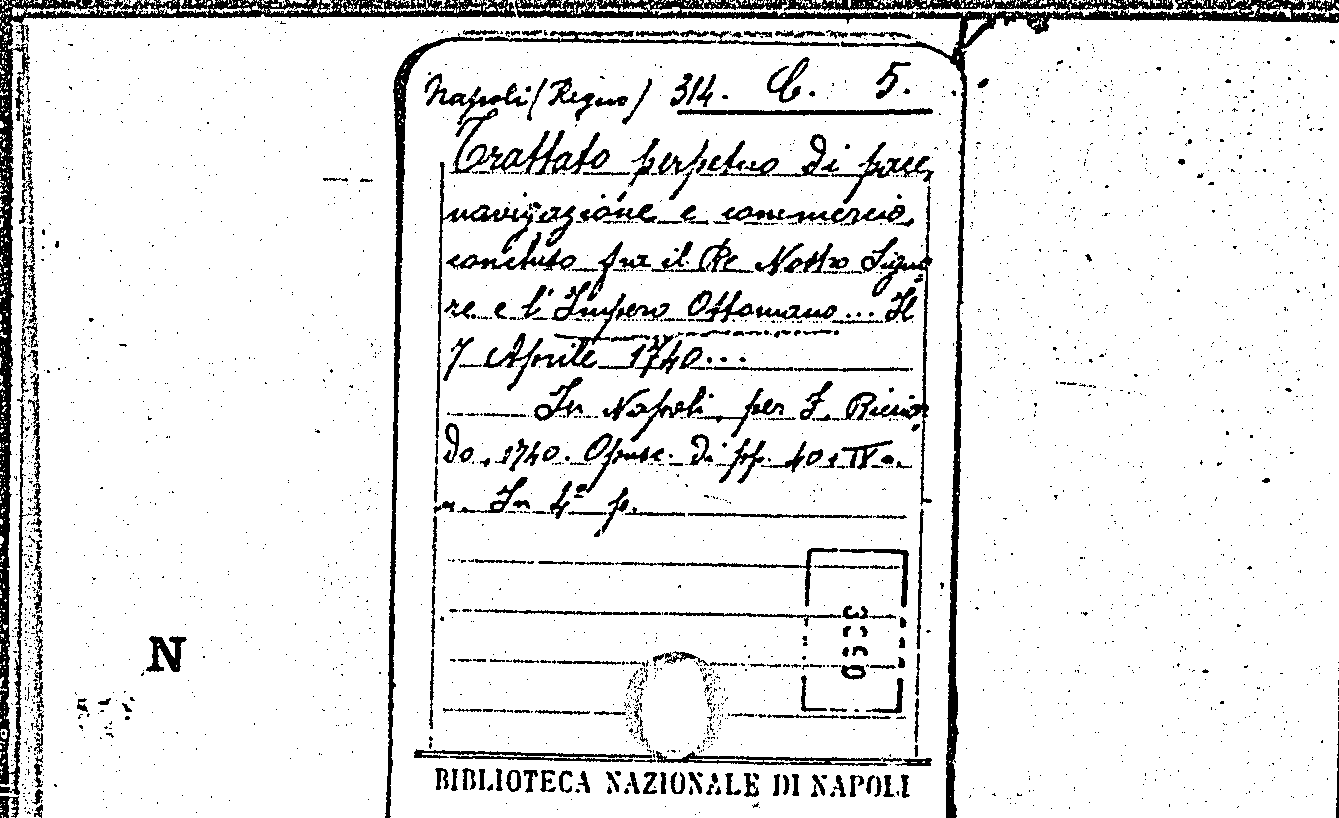 Napoli (Regno) 314. C. 5.
Trattato perpetuo di pace,
navigazione e commercio,
concluso fra il Re Nostro Signo
re e l'Impero Ottomano... Il
7 Aprile 1740...
In Napoli, per F. Ricciar
do, 1740. Opusc. di pp. 40+IV n.
n. In 4º p.
N
BIBLIOTECA NAZIONALE DI NAPOLI